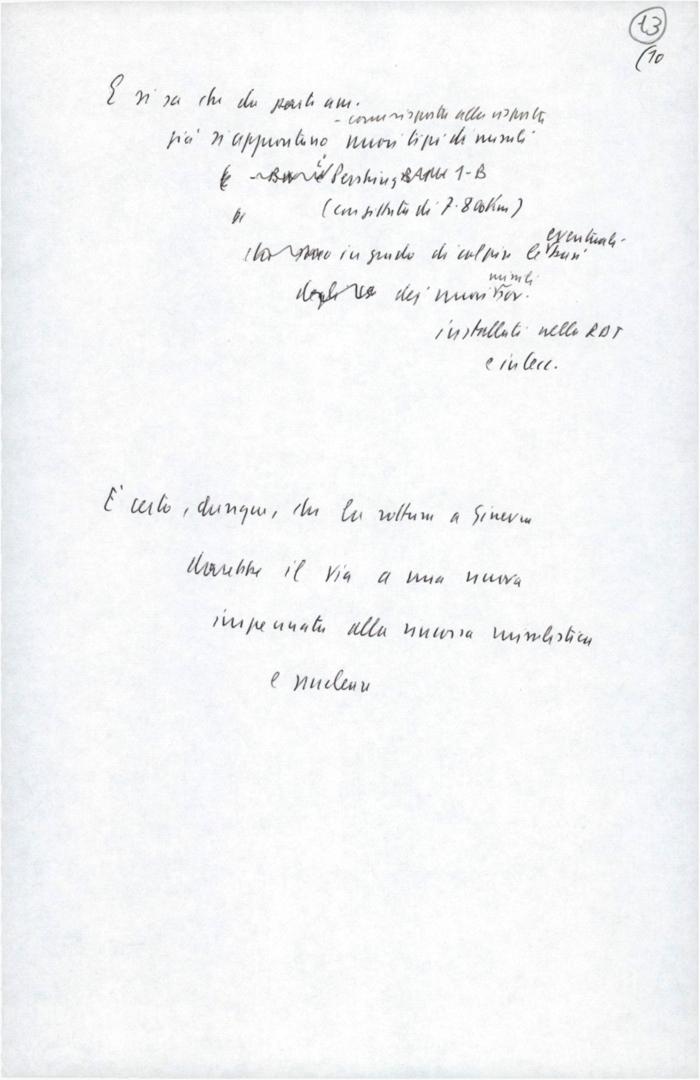 13
(10
E si sa che da parte am.
- come risposta alla risposta
già si approntano nuovi tipi di missili
Pershing 1-B
(con gittata di 7-800 Km)
in grado di colpire le eventuali basi
dei nuovi missili sov.
installati nella RDT
e in Cec.
È certo, dunque, che la rottura a Ginevra
darebbe il via a una nuova
impennata alla rincorsa missilistica
e nucleare